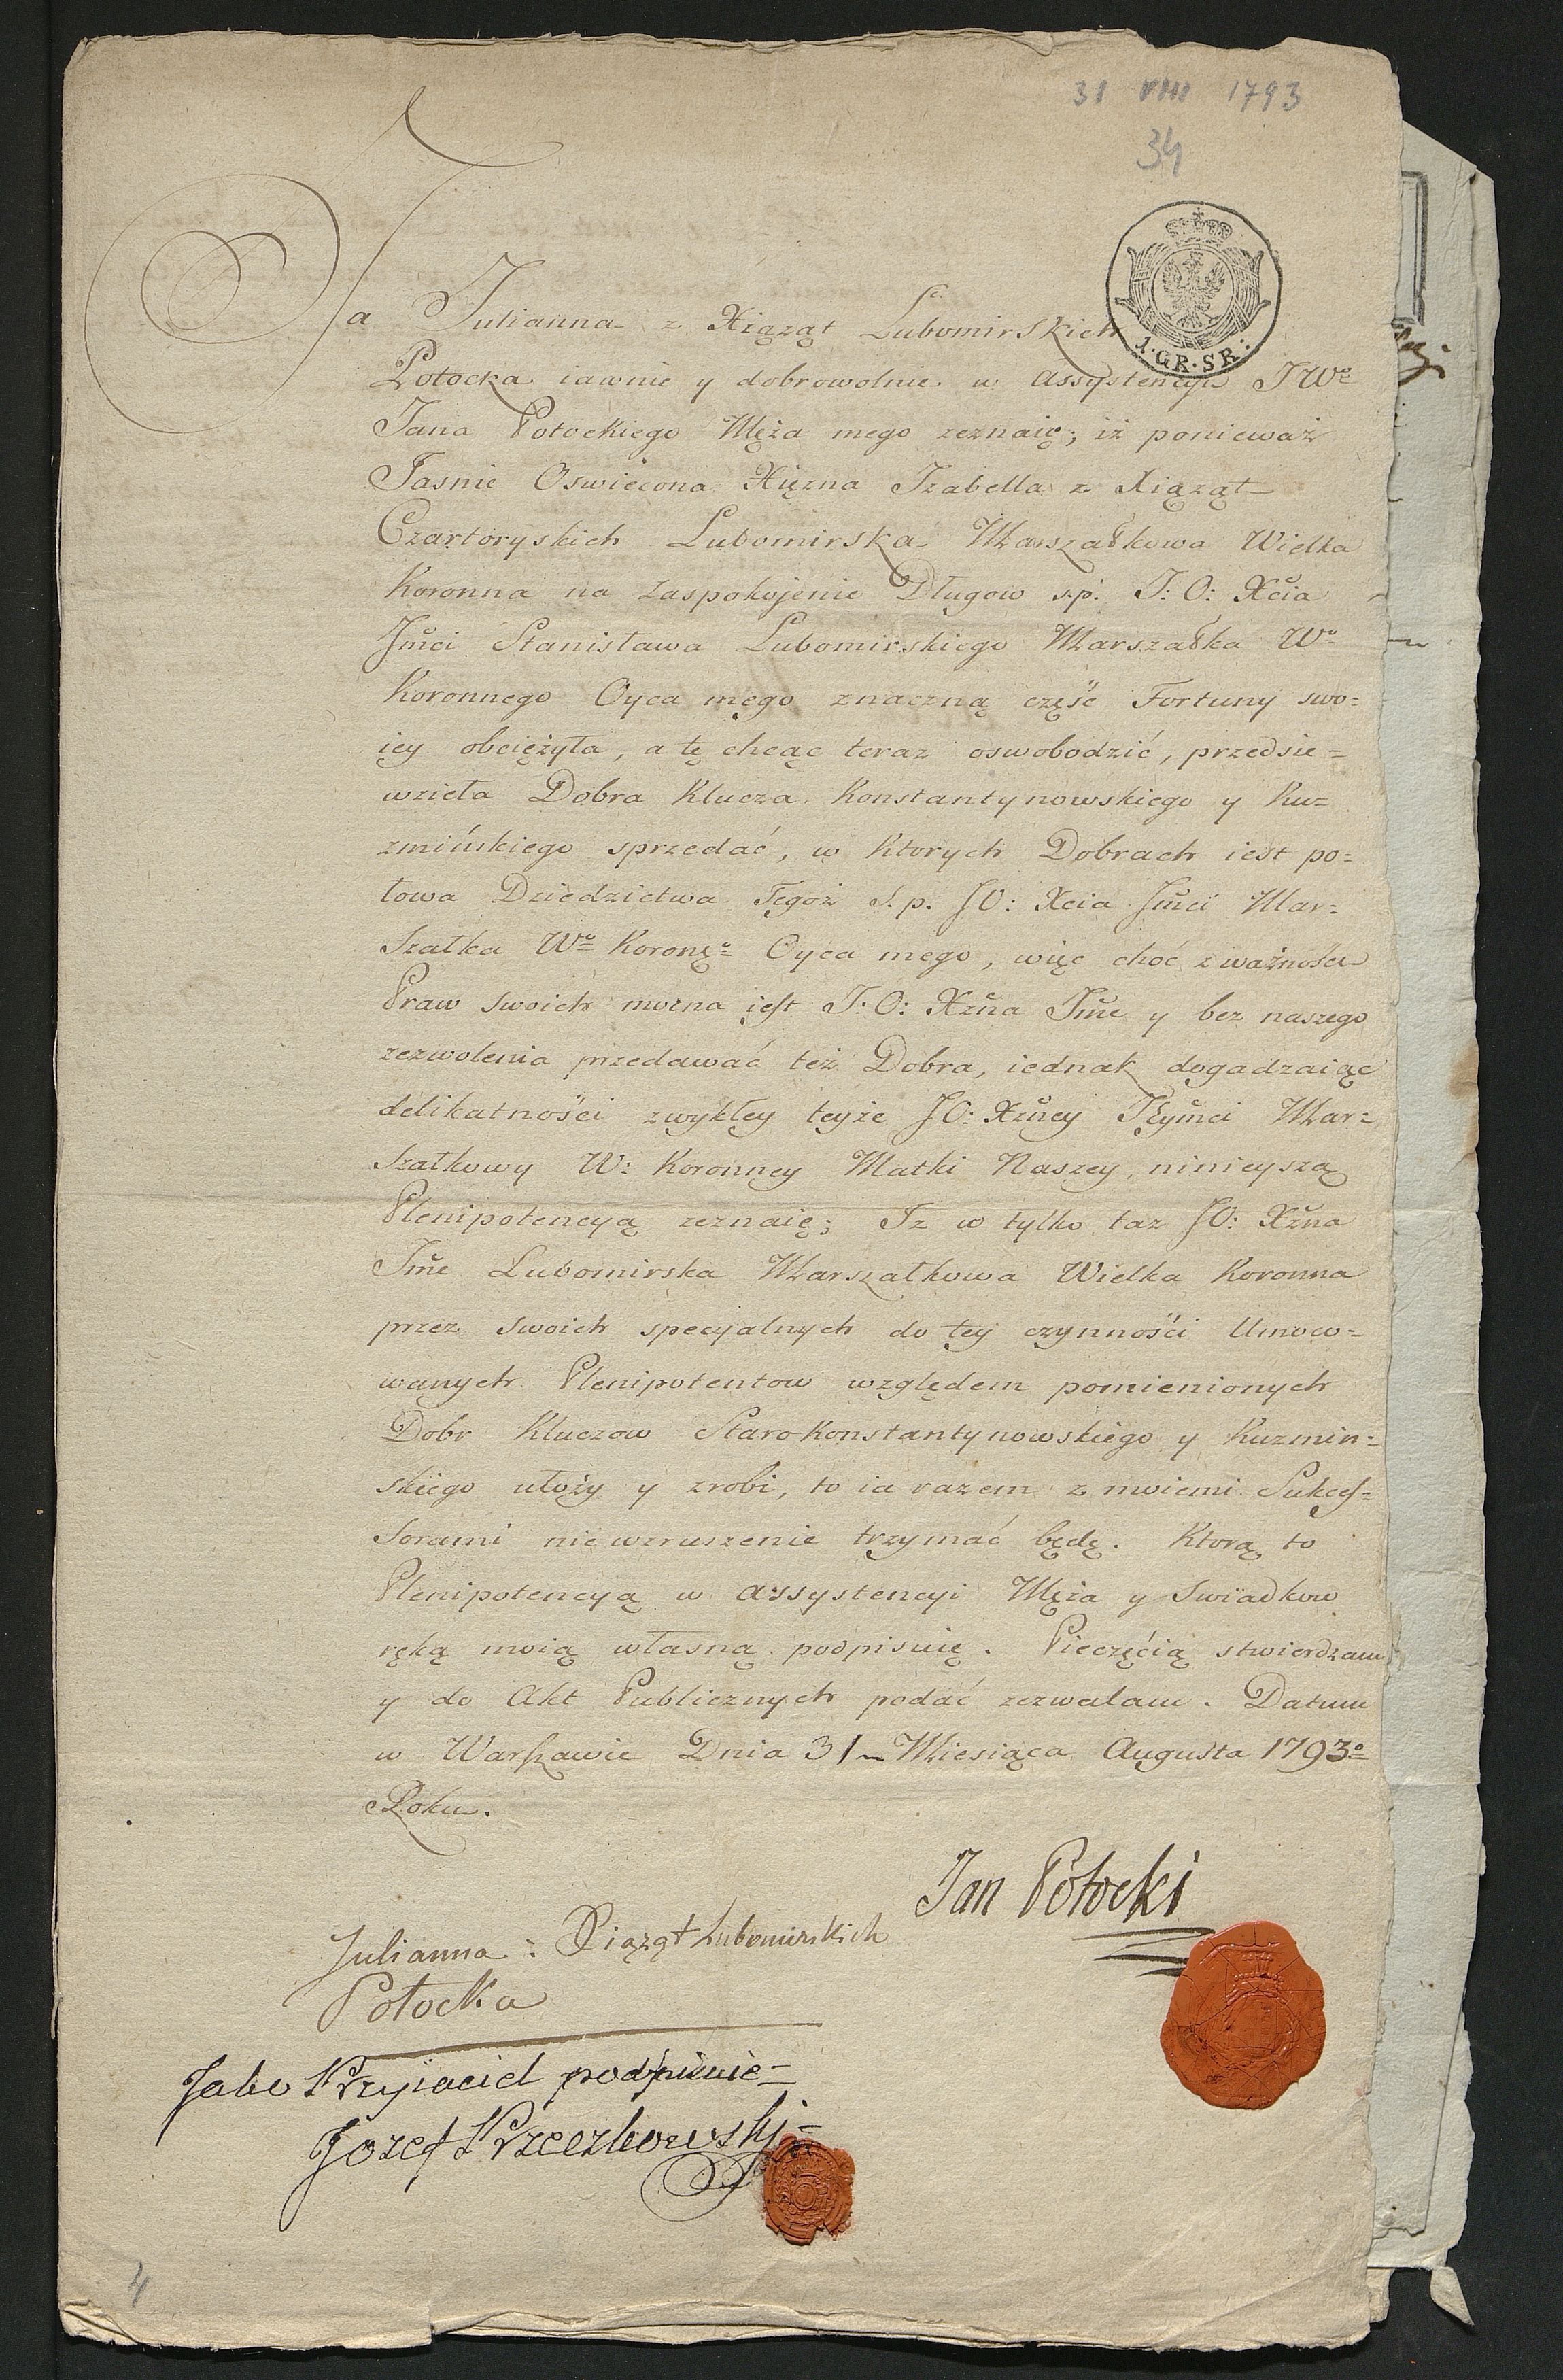 31 VIII 1793
34
1.GR.SR:
Ja Julianna z Xiążąt Lubomirskich
Potocka iawnie y dobrowolnie w assystencyi JWo
Jana Potockiego Męża mego zeznaię; iż ponieważ
Jasnie Oswiecona Xiężna Izabella z Xiążąt
Czartoryskich Lubomirska Marszałkowa Wielka
Koronna na zaspokojenie Długow s.p: J: O: Xcia
Jmci Stanisława Lubomirskiego Marszałka Wo
Koronnego Oyca mego znaczną część Fortuny swo=
iey obciężyła, a tę chcąc teraz oswobodzić, przedsie=
wzieła Dobra Klucza Konstantynowskiego y Ku=
zmińskiego sprzedać, w Ktorych Dobrach iest po=
łowa Dziedzictwa Tegoż S.p. JO: Xcia Jmci Mar=
szałka Wo Koroneo Oyca mego, więc choć z ważności
Praw swoich można iest J: O: Xżna Jmc y bez naszego
zezwolenia przedawać też Dobra, iednak dogadzaiąc
delikatności zwykłey teyże JO: Xżney Jeymci Mar=
szałkowy W: Koronney Matki Naszey, ninieyszą
Plenipotencyą zeznaię; Iz w tylko taz JO: Xżna
Jmc Lubomirska Marszałkowa Wielka Koronna
przez swoich specyjalnych do tey czynności Umoco=
wanych Plenipotentow względem pomienionych
Dobr Kluczow Staro Konstantynowskiego y Kuzmin=
skiego ułoży y zrobi, to ia razem z moiemi Sukces=
sorami niewzruszenie trzymać będę. Ktorą to
Plenipotencyą w assystencyi Męża y Swiadkow
ręką moią własną podpisuię. Pieczęcią stwierdzam
y do Akt Publicznych podać zezwalam. Datum
w Warszawie Dnia 31 Miesiąca Augusta 1793o
Roku.
Jan Potocki
Julianna z Xiążąt Lubomirskich
Potocka
Jako Przyiaciel podpisuie
Jozef
4